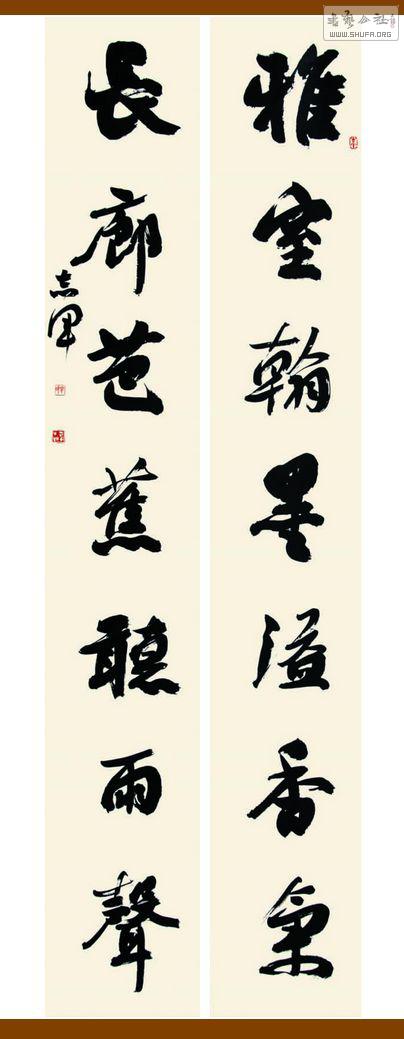 雅室翰墨溢香氣
長廊芭蕉聽雨聲
书艺公社
WWW.SHUFA.ORG